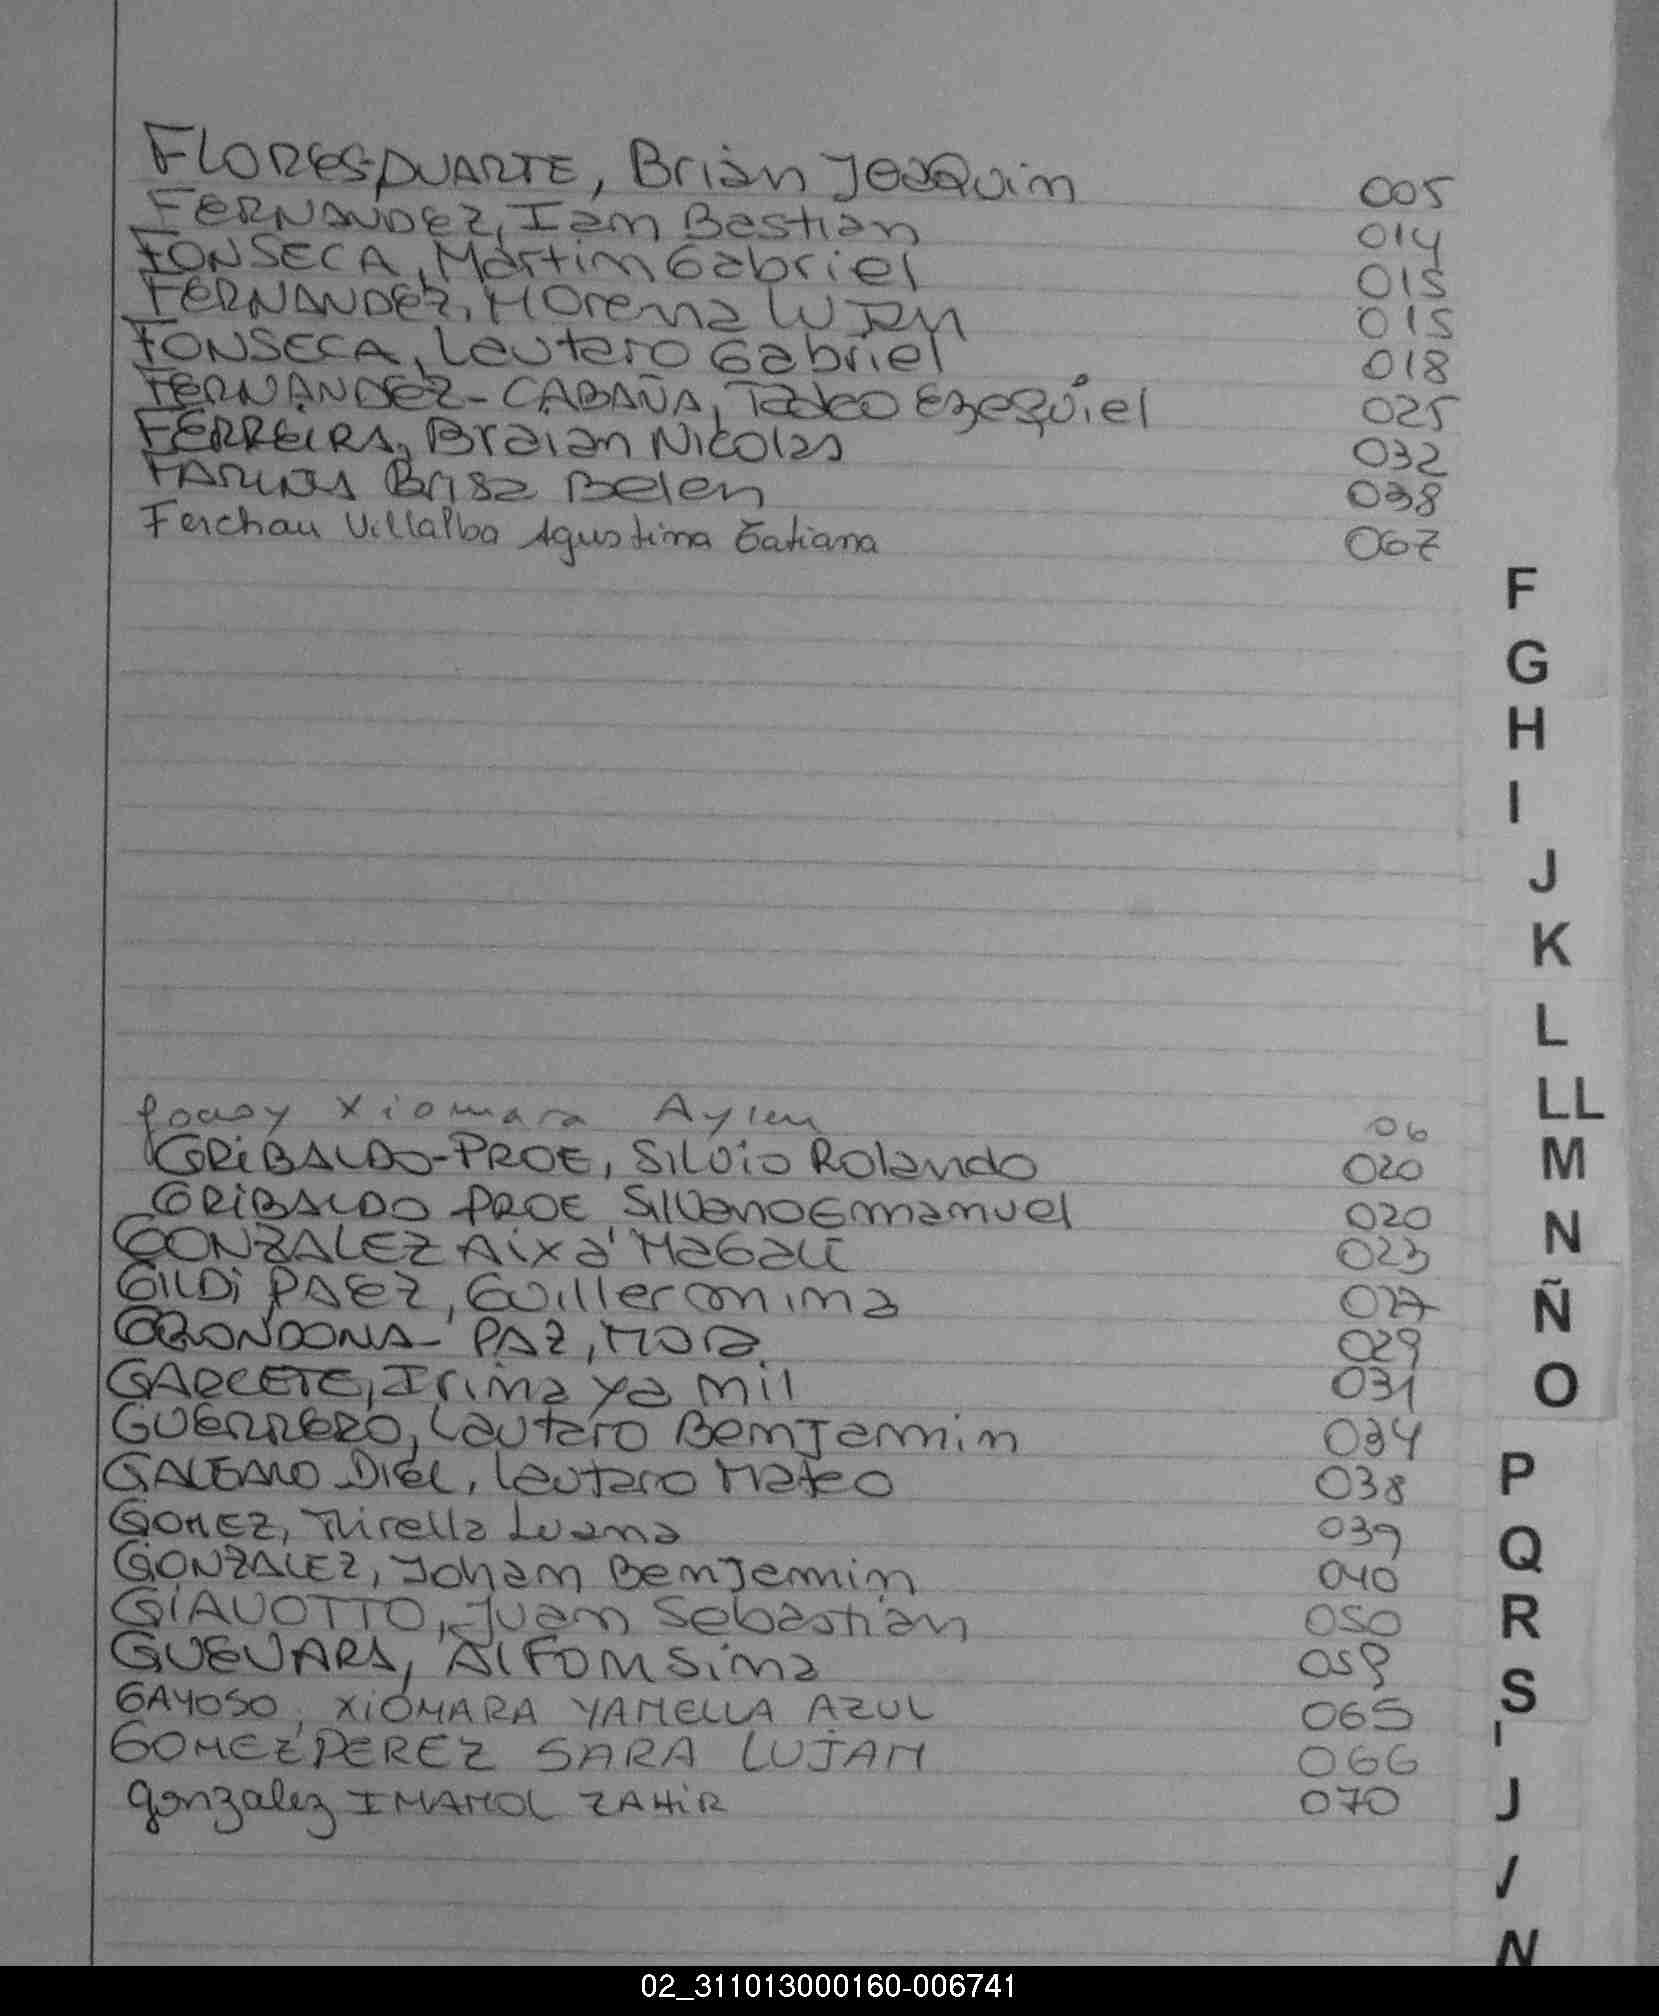 FLORES-DUARTE, Brian Joaquin 005
FERNANDEZ, Iam Bastian 014
FONSECA, Martim Gabriel 015
FERNANDEZ, Morena 015
FONSECA, Lautaro Gabriel 018
FERNANDEZ-CABAÑA, Tadeo Ezequiel 025
FERREIRA, Braian Nicolas 032
Brisa Belen 038
Ferchau Villalba Agustina Tatiana 067
F
G
H
I
J
K
L
LL
Xiomara Aylen 06
GRiBALDO-PROE, Silvio Rolando 020
M
GRiBALDO PROE Silvano Emmanuel 020
N
GONZALEZ Aixa Magali 023
GILDi PAEZ, Guillermina 027
Ñ
GRONDONA PAZ, Mora 029
GARCETE, Irina Yamil 031
O
GUERRERO, Lautaro BemJamin 034
GALEANO Diel, Lautaro Mateo 038
P
GOMEZ, Mirella Luana 039
Q
GONZALEZ, Joham BemJamin 040
GIAVOTTO, Juan Sebastian 050
R
GUEVARA, Alfomsina 059
S
GAYOSO, XiOMARA YAMELLA AZUL 065
GOMEZ PEREZ SARA LUJAM 066
gonzalez IMAMOL ZAHiR 070
J
N
02_311013000160-006741